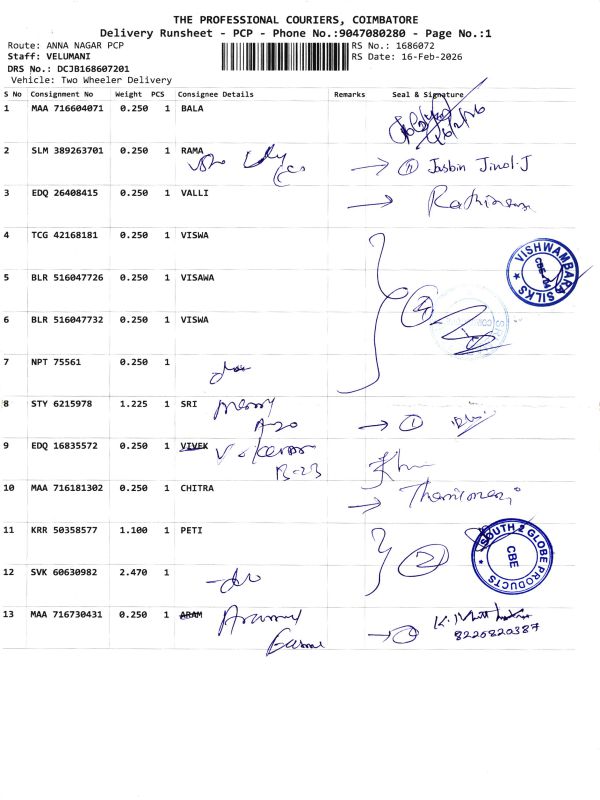 THE PROFESSIONAL COURIERS, COIMBATORE
Delivery Runsheet - PCP - Phone No.:9047080280 - Page No.:1
Route: ANNA NAGAR PCP RS No.: 1686072
Staff: VELUMANI RS Date: 16-Feb-2026
DRS No.: DCJB168607201
Vehicle: Two Wheeler Delivery
S No Consignment No Weight PCS Consignee Details Remarks Seal & Signature
1 MAA 716604071 0.250 1 BALA
2 SLM 389263701 0.250 1 RAMA
Jasbin Jinol.J
3 EDQ 26408415 0.250 1 VALLI
4 TCG 42168181 0.250 1 VISWA
VISHWAMBARA SILKS CBE
5 BLR 516047726 0.250 1 VISAWA
4
6 BLR 516047732 0.250 1 VISWA
7 NPT 75561 0.250 1
8 STY 6215978 1.225 1 SRI
1
9 EDQ 16835572 0.250 1 VIVEK
B-23
10 MAA 716181302 0.250 1 CHITRA
11 KRR 50358577 1.100 1 PETI
2
SOUTH 2 GLOBE PRODUCTS CBE
12 SVK 60630982 2.470 1
13 MAA 716730431 0.250 1 ARAM
8226820387